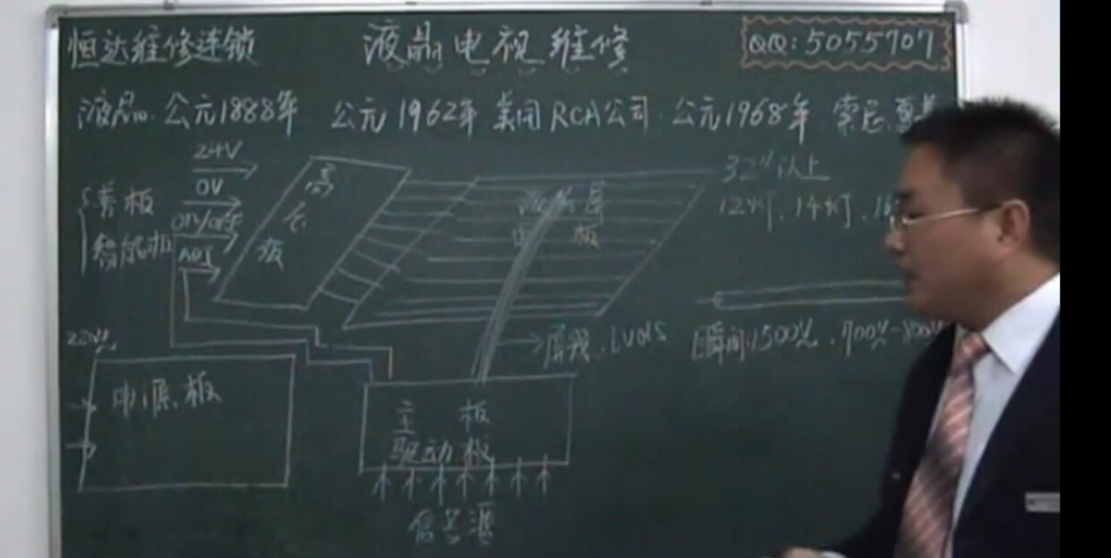 恒达维修连锁 液晶电视维修 QQ:5055707
液晶.公元1888年 公元1962年 美国RCA公司.公元1968年 索尼
24V
0V
ON/OFF
ADJ
高压板
32"以上
12灯.14灯.
屏线.LVDS
瞬间1500V.700V-800V
220V
电源板
主 板
驱动板
信号源